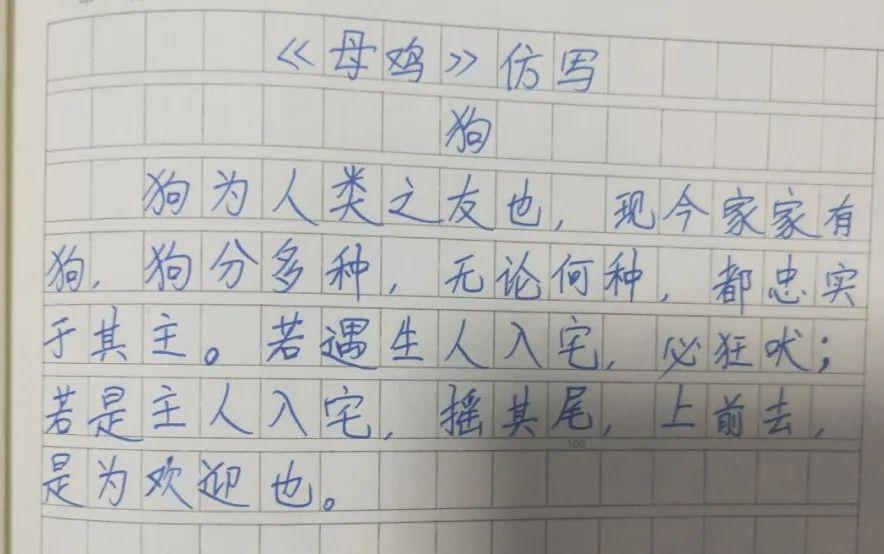 《母鸡》仿写
狗
狗为人类之友也，现今家家有
狗，狗分多种，无论何种，都忠实
于其主。若遇生人入宅，必狂吠；
若是主人入宅，摇其尾，上前去，
100
是为欢迎也。